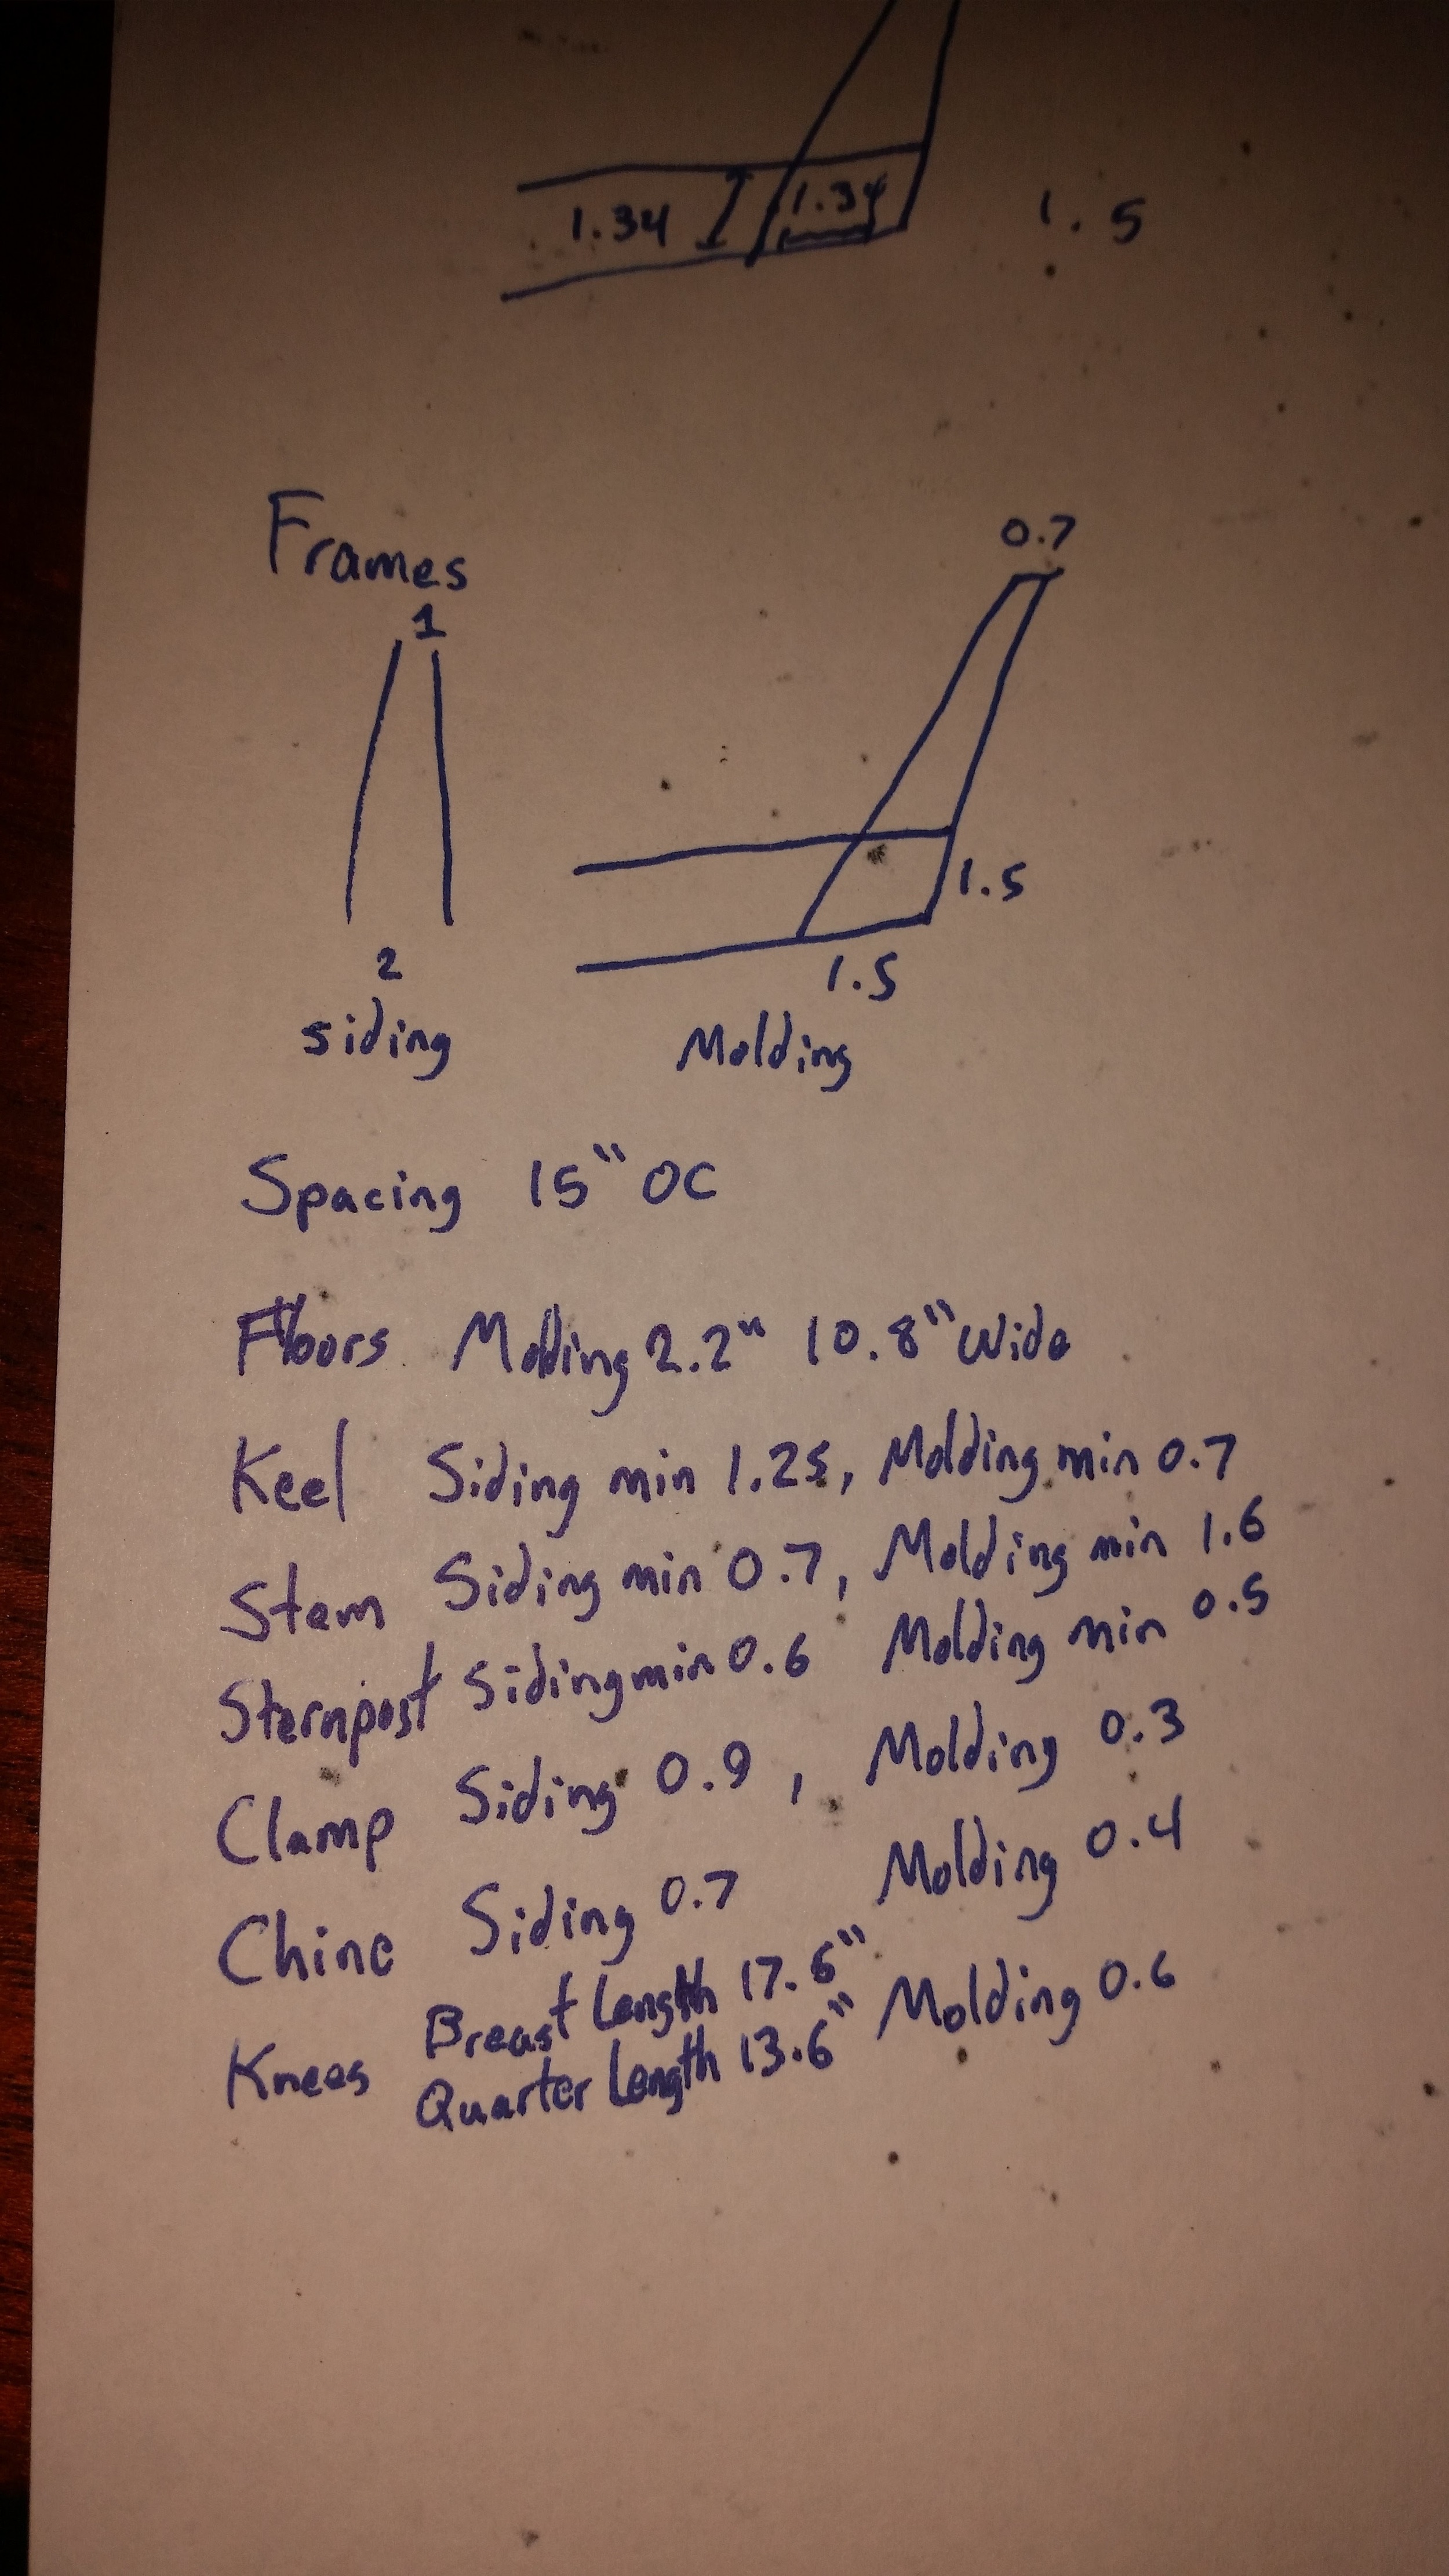 1.34 1.34 1.5
Frames
1
0.7
1.5
2
1.5
siding Molding
Spacing 15" OC
Floors Molding 2.2" 10.8" Wide
Keel Siding min 1.25, Molding min 0.7
Stem Siding min 0.7, Molding min 1.6
Sternpost Siding min 0.6 Molding min 0.5
Clamp Siding 0.9, Molding 0.3
Chine Siding 0.7 Molding 0.4
Knees Breast Length 17.6"
Quarter Length 13.6" Molding 0.6